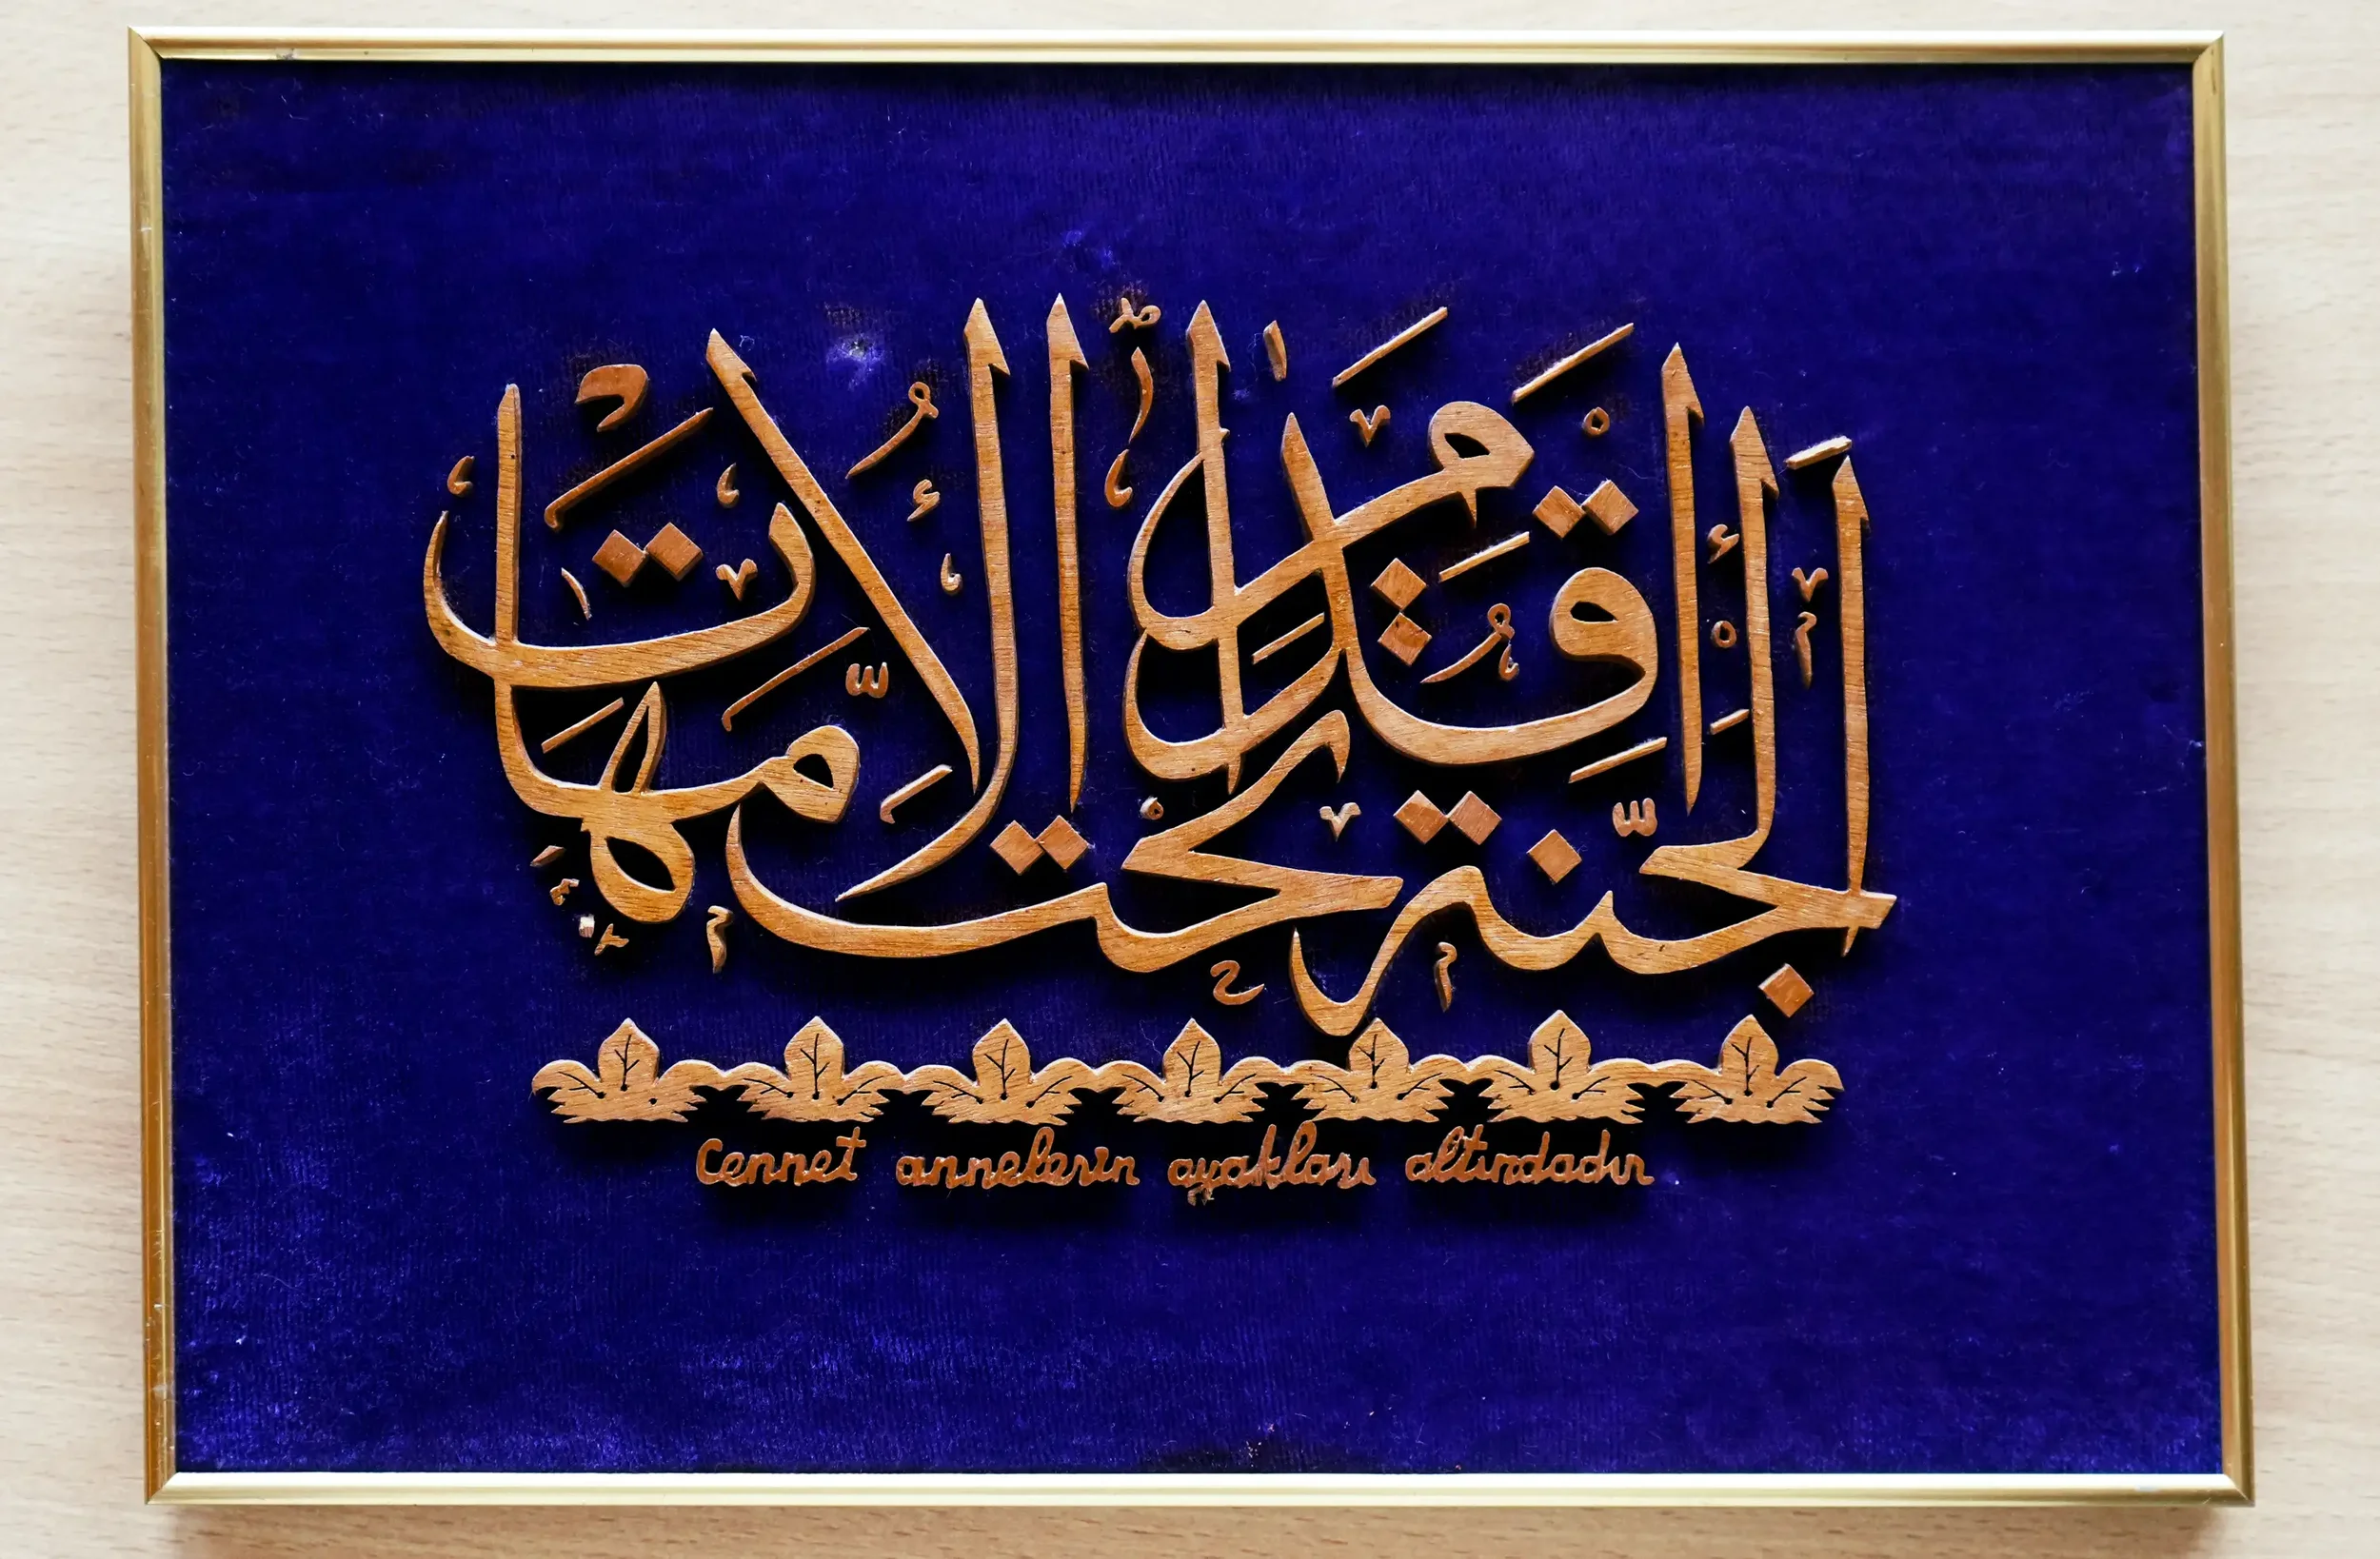 الجنة تحت اقدام الامهات
Cennet annelerin ayakları altındadır